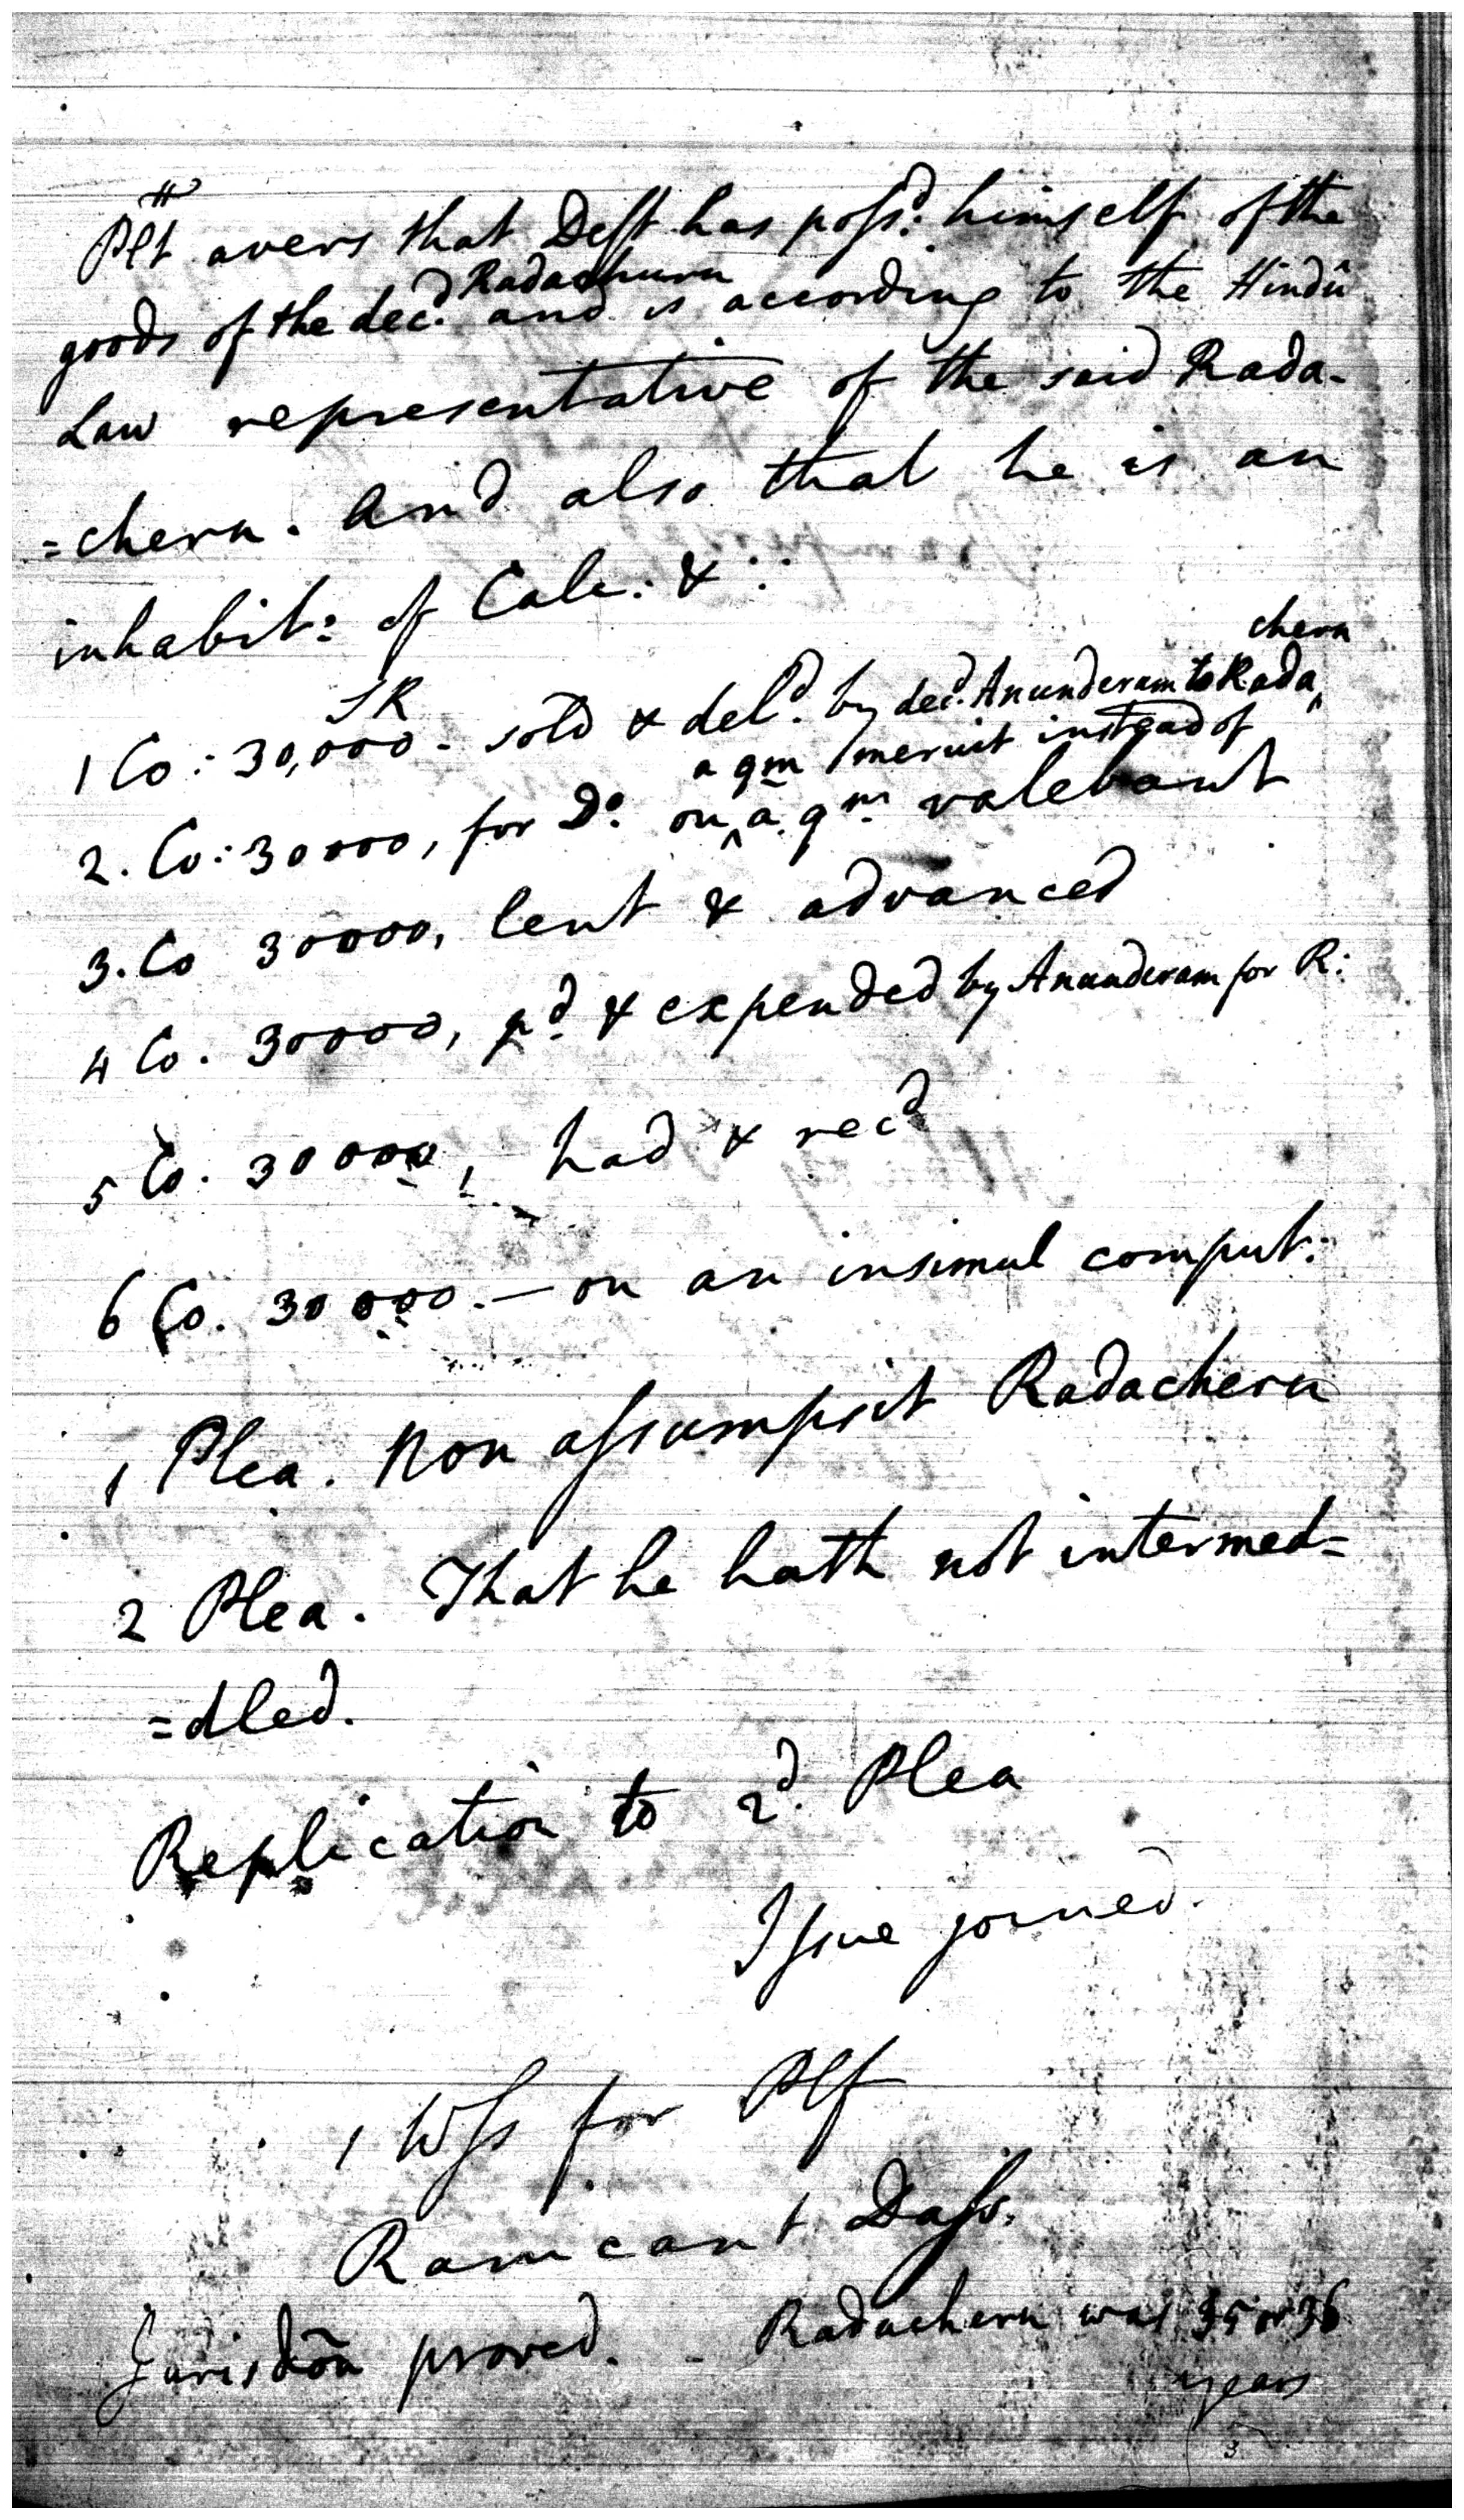 #
Plt avers that Deft has poſs:d himself of the
Radachurn
goods of the dec:d and is according to the Hindû
Law representative of the said Rada-
=chern. And also that he is an
inhabit: of Calc: & ::
chern
SR
1 Co: 30,000 - sold & del:d by dec:d Anunderam to Rada ‸
a qm meruit instead of
2. Co: 30000, for D:o on ‸ a qm valebant
3. Co 30000, lent & advanced
4 Co. 30000, p:d & expended by Anunderam for R:
5 Co. 30000, had & rec:d
6 Co. 30000. — on an insimul comput:
1 Plea. Non aſsumpsit Radachern
2 Plea. That he hath not intermed=
=dled.
Replication to 2:d Plea
Iſsue joined.
1 Wſs for Plf
Ramcant Daſs.
Jurisdcõn proved. - Radachern was 35 or 36
years
3